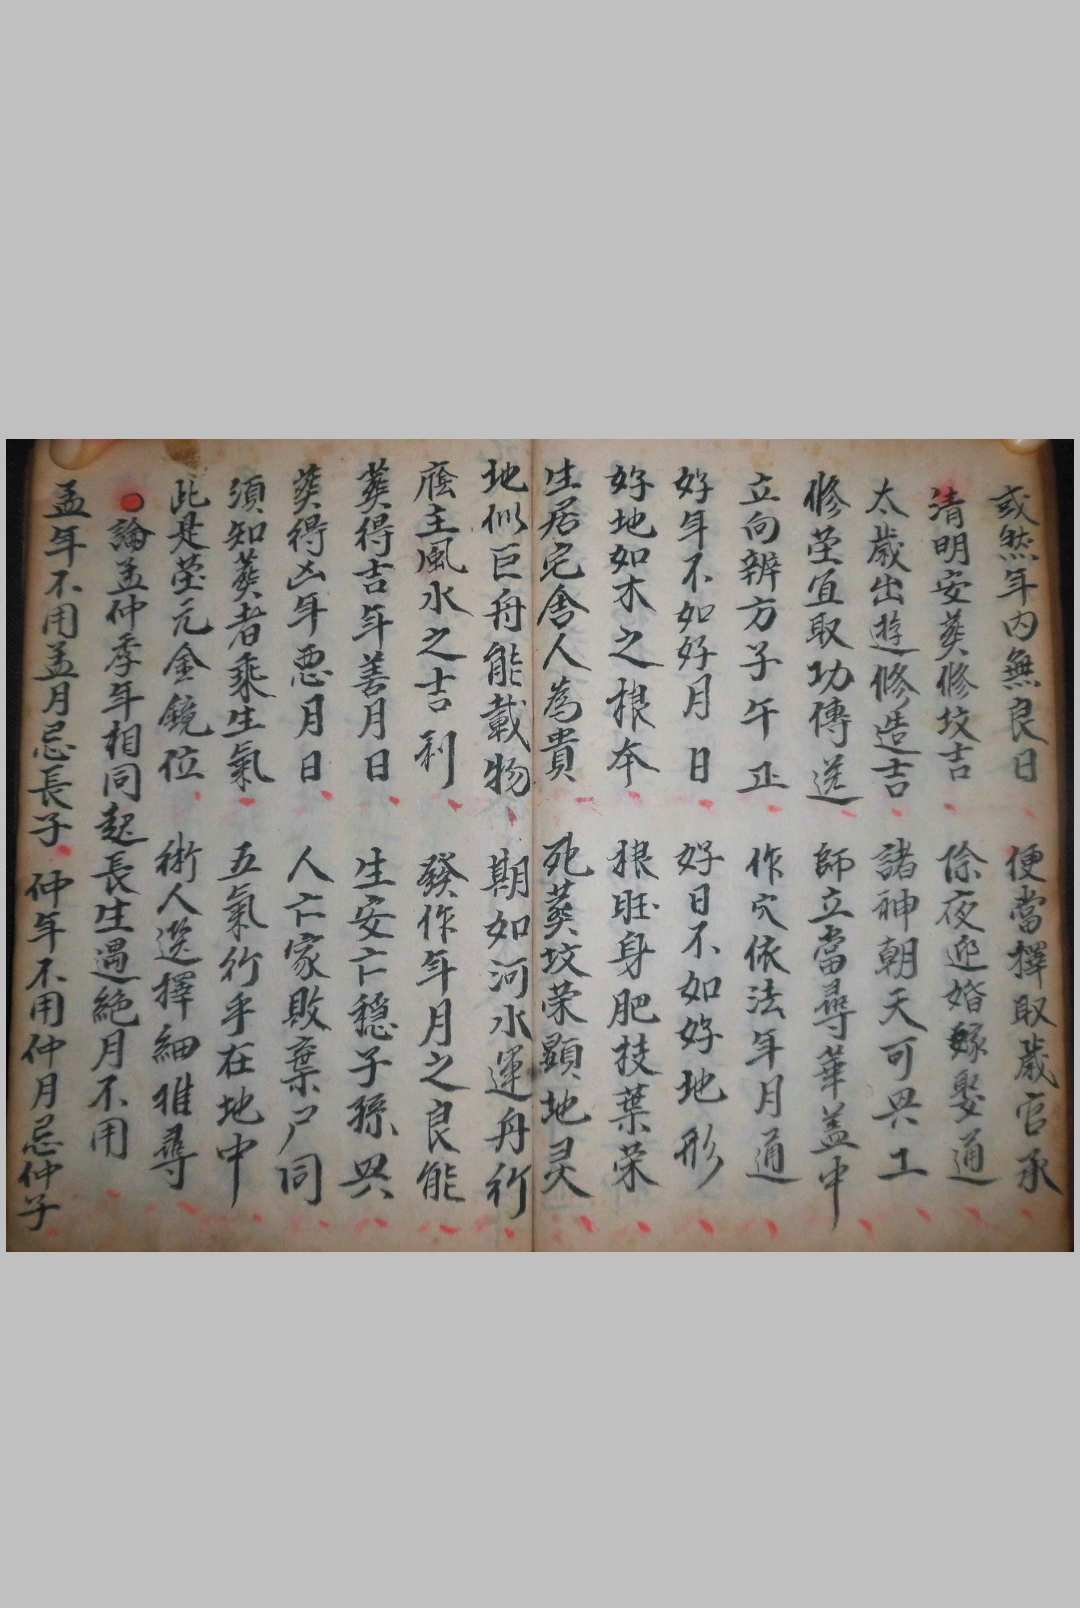 或然年内無良日 便當擇取歲官承
清明安葬修坟吉 除夜迎婚嫁娶通
太歲出遊修造吉 諸神朝天可興工
修茔宜取功傳送 師立當尋華盖中
立向辨方子午正 作穴依法年月通
好年不如好月日 好日不如好地形
好地如木之根本 根旺身肥枝葉荣
生居宅舍人為貴 死葬坟荣顕地灵
地似巨舟能載物 期如河水運舟行
廕主風水之吉利 發作年月之良能
葬得吉年善月日 生安亡穏子孫興
葬得凶年恶月日 人亡家敗棄尸同
須知葬者乘生氣 五氣行乎在地中
此是茔元金鏡位 術人选擇細推尋
論孟仲季年相同起長生遇絶月不用
孟年不用孟月忌長子 仲年不用仲月忌仲子